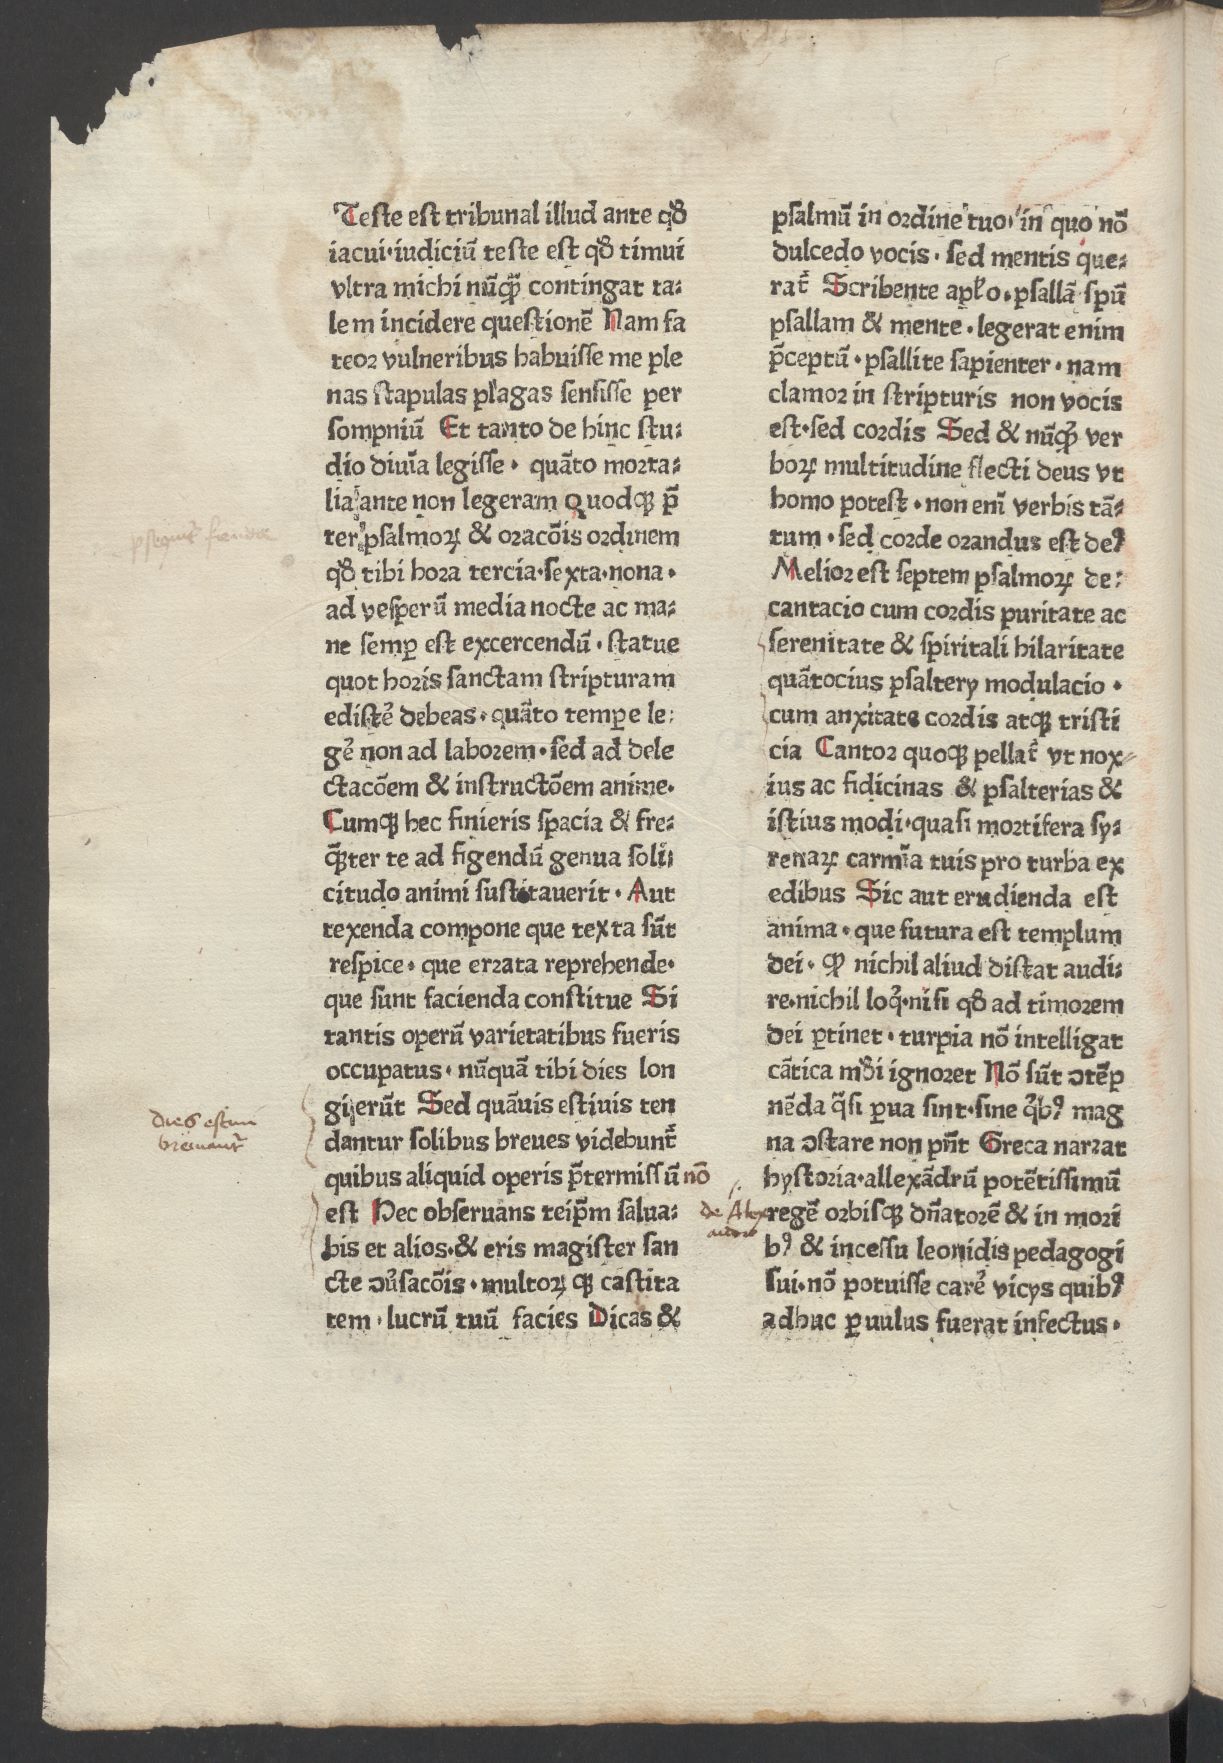 Teste est tribunal illud ante qḋ
iacui·iudiciū teste est qḋ timui
vltra michi nūqꝫ̄ contingat ta⸗
lem incidere questionē Nam fa
teor vulneribus habuisse me ple
nas scapulas plagas sensisse per
sompniū Et tanto de hinc stu⸗
dio diuīa legisse· quāto morta⸗
lia ante non legeram Quodqꝫ p̄
ter psalmoꝝ & oracōis ordinem
qḋ tibi hora tercia·sexta·nona·
ad vesperū media nocte ac ma⸗
ne semꝑ est excercendū·statue
quot horis sanctam scripturam
ediscē debeas·quāto tempe le⸗
gē non ad laborem·sed ad dele
ctacōem & instructōem anime·
Cumqꝫ hec finieris spacia & fre⸗
q̄ter te ad figendū genua soli⸗
citudo animi suscitauerit· Aut
texenda compone que texta sūt
respice·que errata reprehende·
que sunt facienda constitue Si
tantis operū varietatibus fueris
occupatus·nūquā tibi dies lon
gi erūt Sed quāuis estiuis ten
dantur solibus breues videbunt̄
quibus aliquid operis p̄termissū nō
est Hec obseruans teip̄m salua⸗
bis et alios·& eris magister san
cte ꝯūsacōis·multoꝝ qꝫ castita
tem·lucrū tuū facies Dicas &
dies estiui
breuiant̄
psalmū in ordine tuo·in quo nō
dulcedo vocis·sed mentis que⸗
rat̄ Scribente apl̄o·psallā spū
psallam & mente·legerat enim
p̄ceptū·psallite sapienter·nam
clamor in scripturis non vocis
est·sed cordis Sed & nūqꝫ̄ ver
boꝝ multitudine flecti deus vt
homo potest·non enī verbis tā⸗
tum·sed corde orandus est deꝰ
Melior est septem psalmoꝝ de⸗
cantacio cum cordis puritate ac
serenitate & spiritali hilaritate
quātocius psaltery modulacio·
cum anxitate cordis atqꝫ tristi
cia Cantor quoqꝫ pellat̄ vt nox⸗
ius ac fidicinas & psalterias &
istius modi·quasi mortifera sy⸗
renaꝝ carmīa tuis pro turba ex
edibus Sic aut erudienda est
anima·que futura est templum
dei· ꝙ nichil aliud discat audi⸗
re·nichil loq̄·nisi qḋ ad timorem
dei ꝑtinet·turpia nō intelligat
cātica mḋi ignoret Nō sūt ꝯtēp
nēda q̄si ꝑua sint·sine q̄bꝰ mag
na ꝯstare non pn̄t Greca narrat
hystoria·allexādrū potētissimū
regē orbisqꝫ dn̄atorē & in mori
bꝰ & incessu leonidis pedagogi
sui·nō potuisse carē vicys quibꝰ
adhuc ꝑuulus fuerat infectus·
de Alex